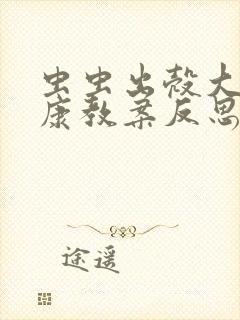 虫虫出壳大
康教案反思
途遥